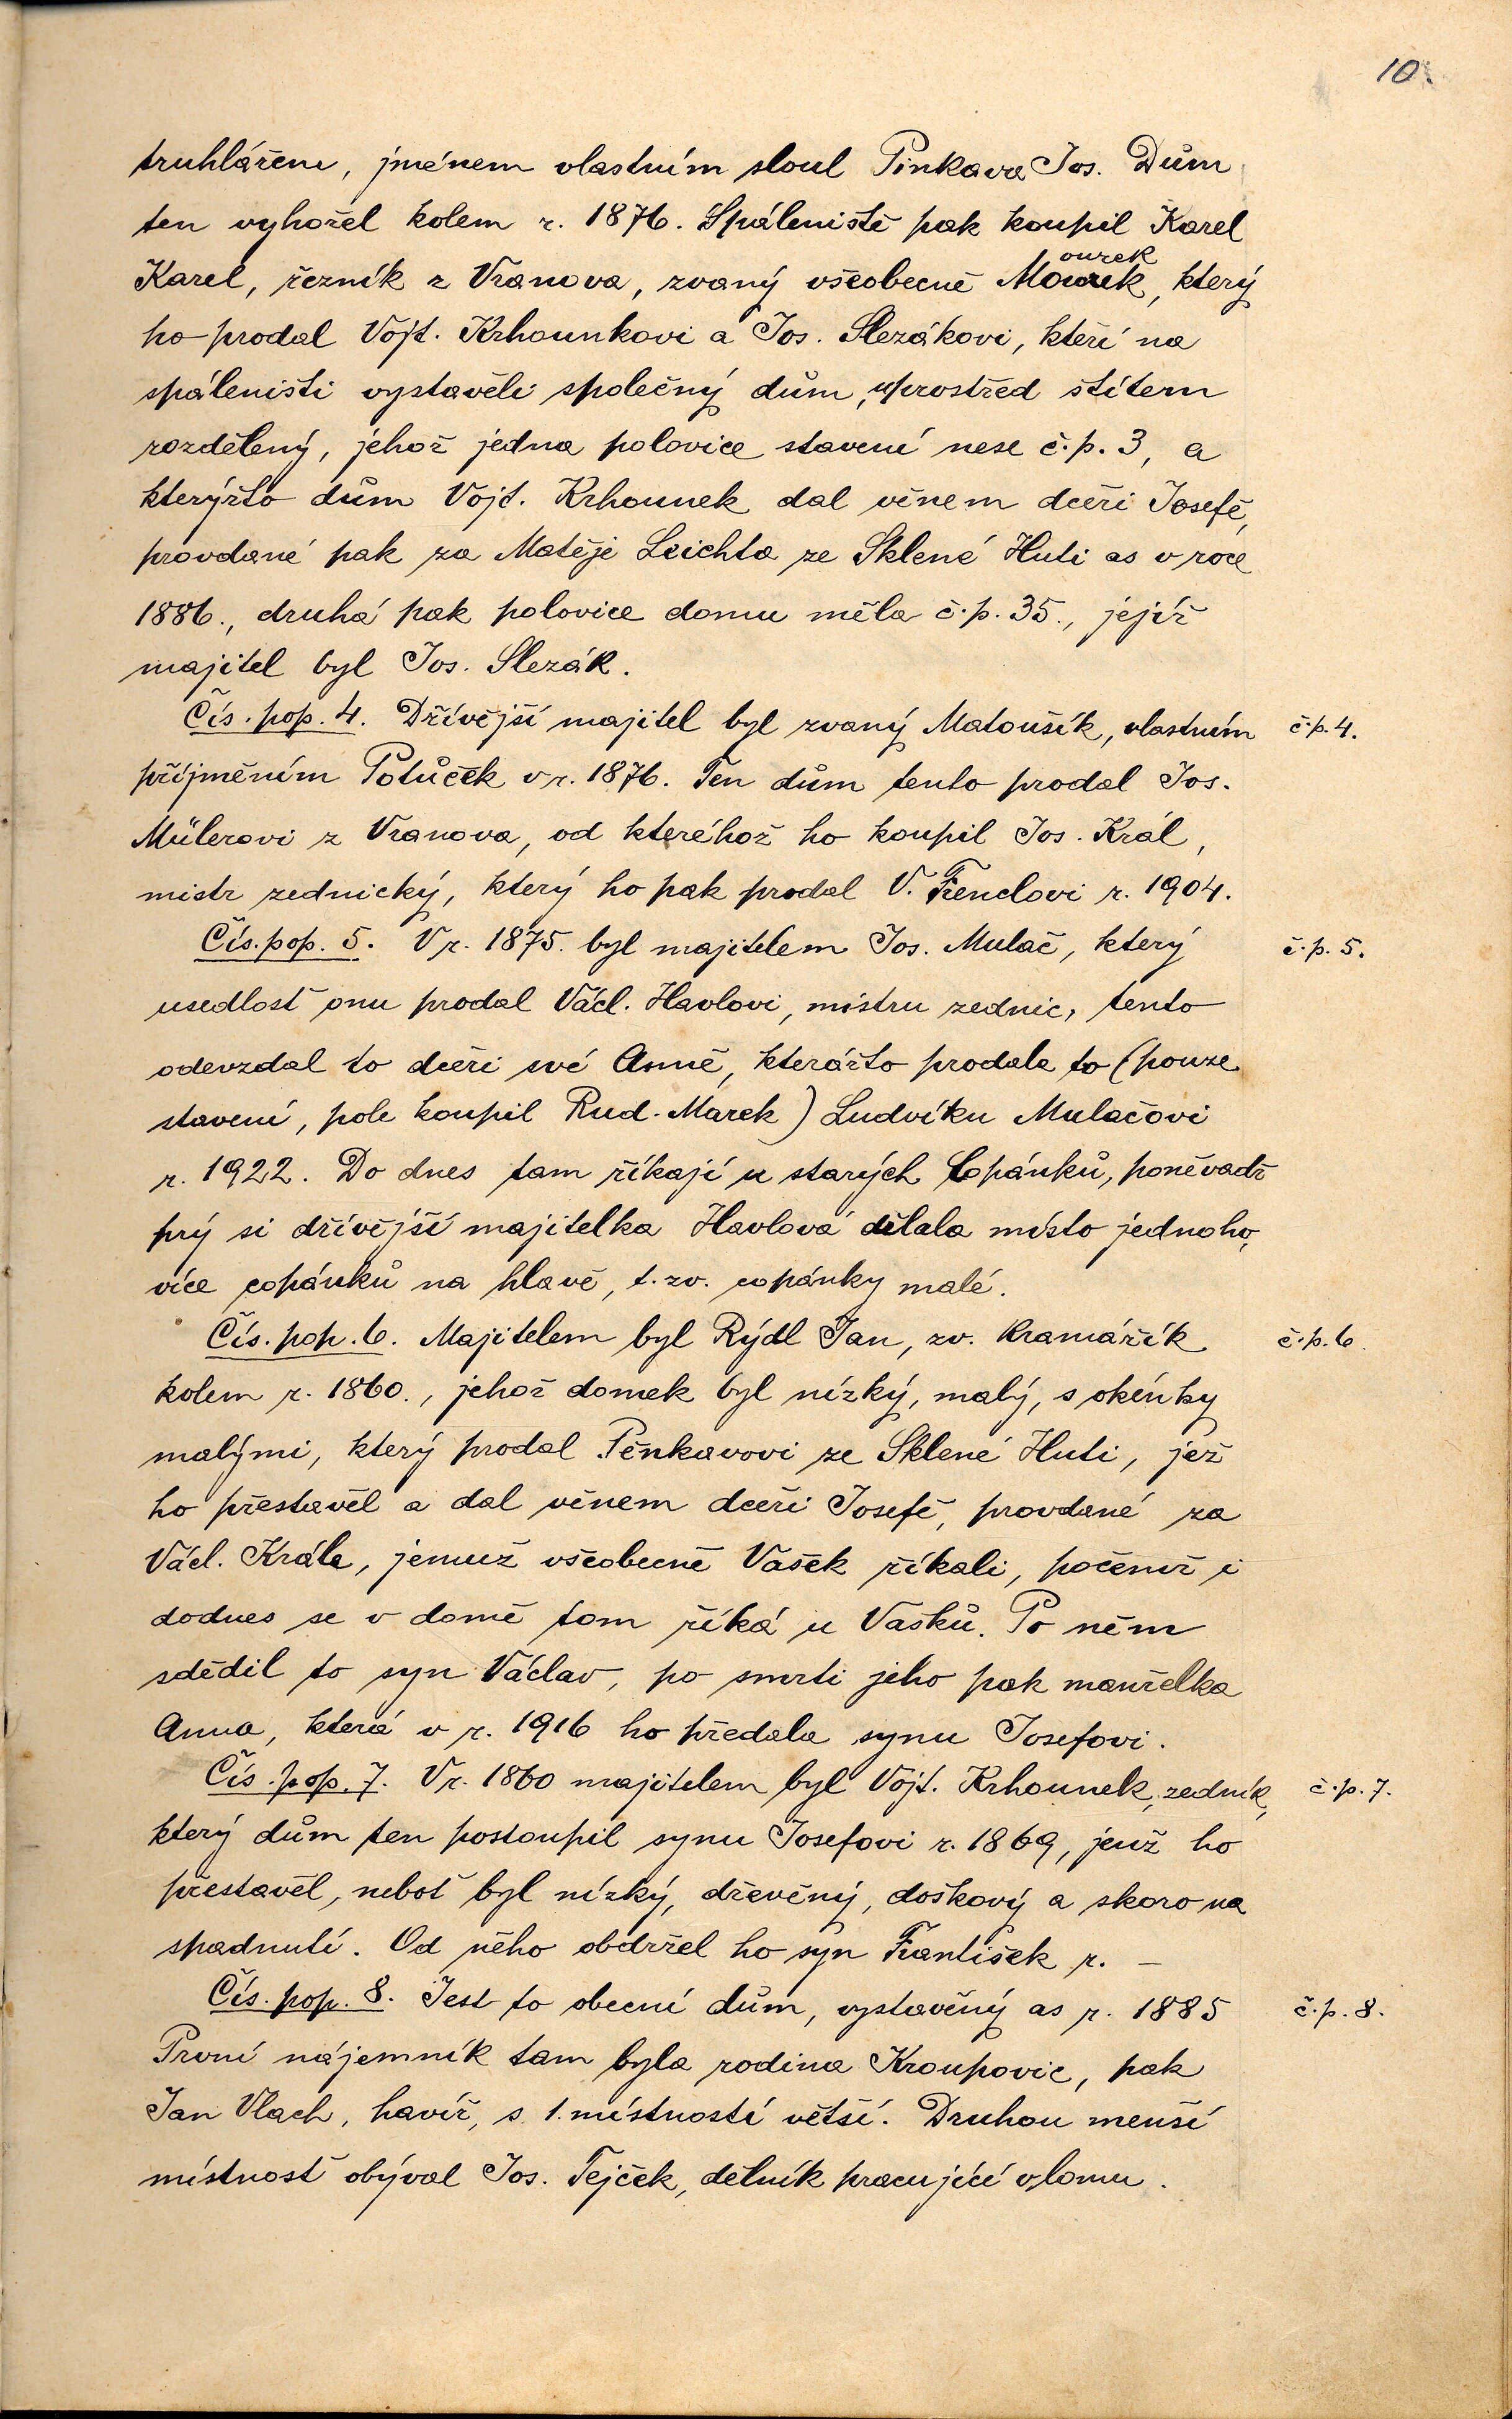 10.
truhlářem, jménem vlastním sloul Pinkava Jos. Dům
ten vyhořel kolem r. 1876. Spáleniště pak koupil Karel
Karel, řezník z Vranova, zvaný všeobecně Mourek, který
ourek
ho prodal Vojt. Krhounkovi a Jos. Slezákovi, kteří na
spáleništi vystavěli společný dům, uprostřed štítem
rozdělený, jehož jedna polovice stavení nese č.p. 3, a
kterýžto dům Vojt. Krhounek dal věnem dceři Josefě,
provdané pak za Matěje Leichta ze Sklené Huti as v roce
1886., druhá pak polovice domu měla č.p. 35., jejíž
majitel byl Jos. Slezák.
Čís. pop. 4. Dřívější majitel byl zvaný Matoušík, vlastním
č.p. 4.
příjměním Potůček v r. 1876. Ten dům tento prodal Jos.
Müllerovi z Vranova, od kteréhož ho koupil Jos. Král,
mistr zednický, který ho pak prodal V. Frenclovi r. 1904.
Čís. pop. 5. V r. 1875. byl majitelem Jos. Mulač, který
č.p. 5.
usedlosť onu prodal Václ. Havlovi, mistru zednic, tento
odevzdal to dceři své Anně, kterážto prodala to (pouze
stavení, pole koupil Rud. Marek) Ludvíku Mulačovi
r. 1922. Do dnes tam říkají u starých Copánků, poněvadž
prý si dřívější majitelka Havlová dělala místo jednoho,
více copánků na hlavě, t. zv. copánky malé.
Čís. pop. 6. Majitelem byl Rýdl Jan, zv. Kramářík
č.p. 6.
kolem r. 1860., jehož domek byl nízký, malý, s okénky
malými, který prodal Pěnkavovi ze Sklené Huti, jež
ho přestavěl a dal věnem dceři Josefě, provdané za
Václ. Krále, jemuž všeobecně Vašek říkali, počemž i
dodnes se v domě tom říká u Vašků. Po něm
sdědil to syn Václav, po smrti jeho pak manželka
Anna, která v r. 1916 ho předala synu Josefovi.
Čís. pop. 7. V r. 1860 majitelem byl Vojt. Krhounek, zedník,
č.p. 7.
který dům ten postoupil synu Josefovi r. 1869, jenž ho
přestavěl, neboť byl nízký, dřevěný, doškový a skoro na
spadnutí. Od něho obdržel ho syn František r. –
Čís. pop. 8. Jest to obecní dům, vystavěný as r. 1885
č.p. 8.
První nájemník tam byla rodina Kroupovic, pak
Jan Vlach, havíř, s 1. místností větší. Druhou menší
místnosť obýval Jos. Tejček, dělník pracující v lomu.